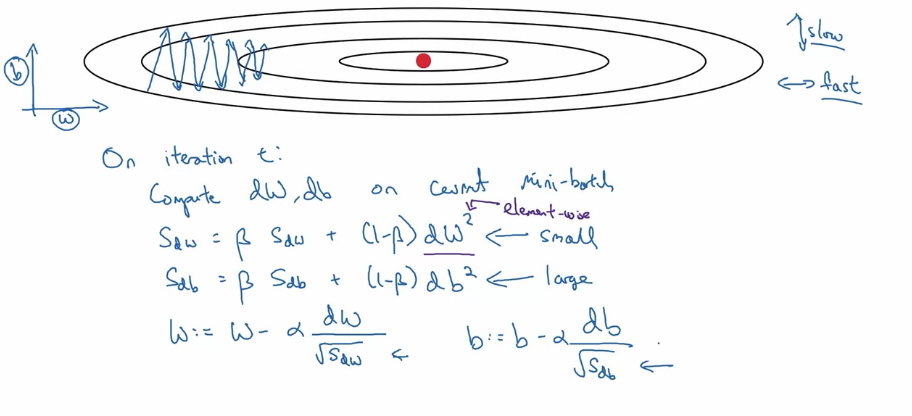 slow
b
fast
w
On iteration t:
Compute dW, db on current mini-batch
element-wise
S_dw = β S_dw + (1-β) dW² ← small
S_db = β S_db + (1-β) db² ← large
W := W - α dW/√S_dw ← b := b - α db/√S_db ←